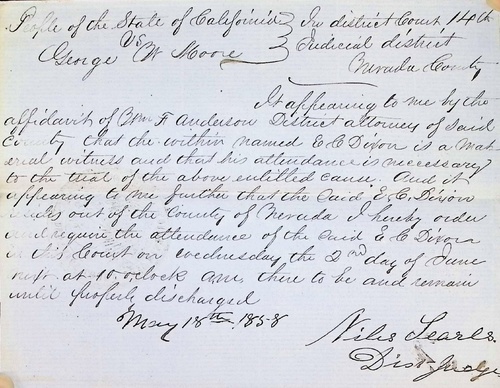 People of the State of California } In district Court 14th
Vs } Judicial district
George W Moore } Nevada County
It appearing to me by the
affidavit of Wm F Anderson District attorney of said
County that the within named E C Dixon is a mat
erial witness and that his attendance is necessary
to the trial of the above entitled cause. And it
appearing to me further that the said E. C. Dixon
out of the County of Nevada I hereby order
and require the attendance of the said E C Dixon
in this Court on Wednesday the 2nd day of June
next at 10. oclock am, there to be and remain
until properly discharged
May 18th 1858
Niles Searls.
Dist Judge